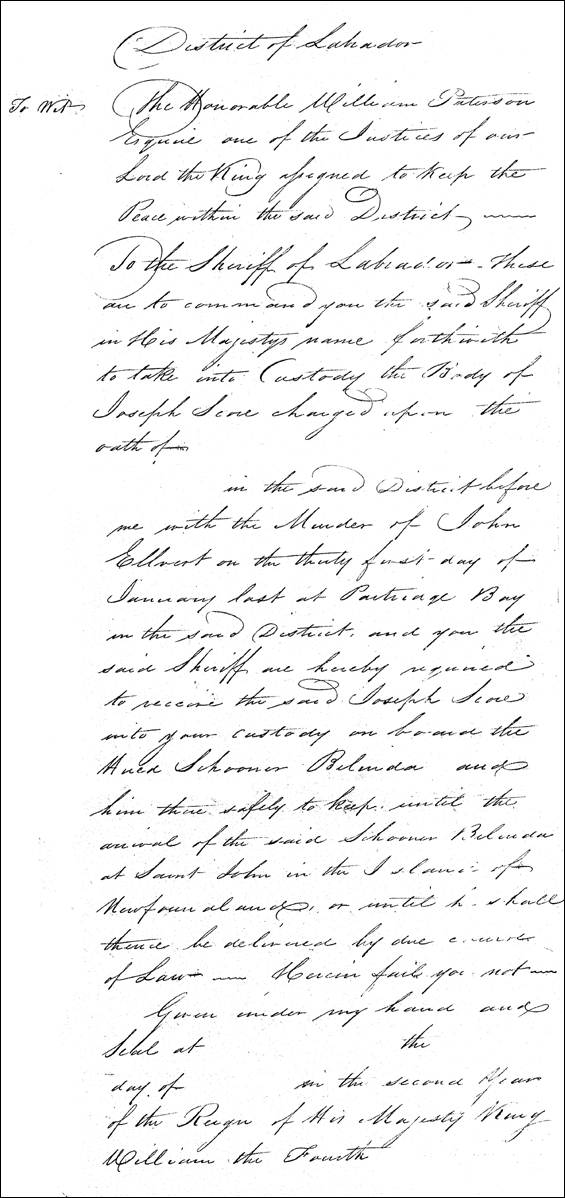 District of Labrador
To Wit The Honorable William Paterson
Esquire one of the Justices of our
Lord the King assigned to keep the
Peace within the said District
To the Sheriff of Labrador - These
are to command you the said Sheriff
in His Majestys name forthwith
to take into Custody the Body of
Joseph Score charged upon the
oath of
in the said District before
me with the Murder of John
Ellvert on the thirty first day of
January last at Partridge Bay
in the said District, and you the
said Sheriff are hereby required
to receive the said Joseph Score
into your custody on board the
Hired Schooner Belinda and
him there safely to keep until the
arrival of the said Schooner Belinda
at Saint John in the Island of
Newfoundland, or until he shall
thence be delivered by due course
of Law - Herein fail you not
Given under my hand and
Seal at the
day of in the second Year
of the Reign of His Majesty King
William the Fourth